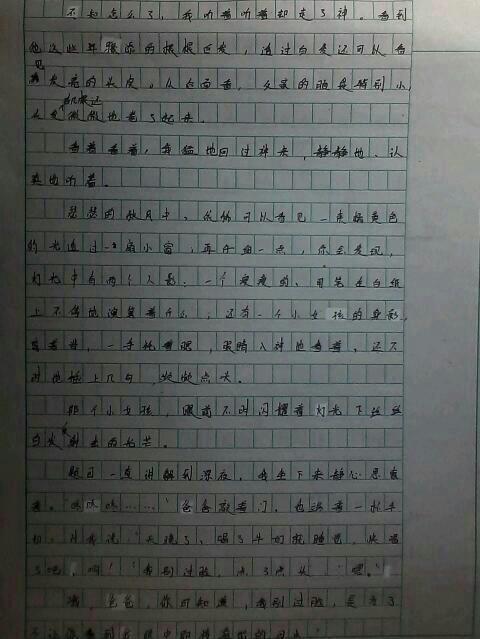 不知怎么了，我听着听着却走了神。看到
他这些年操添的根根白发，透过白发还可以看
见发亮的头皮。从后面看，父亲的脑袋特别小，
头发微微地卷了起来。
看着看着，我猛地回过神来，静静地、认
真地听着。
瑟瑟的秋月中，依稀可以看见一束橘黄色
的光透过一扇小窗，再仔细一点，你会发现，
灯光中有两个人影：一个瘦瘦的、用笔在白纸
上不停地演算着什么；还有一个小女孩的身影，
一手托着腮，眼睛入神地看着，还不
时地插上几句，点点头。
那个小女孩，眼前不时闪耀着灯光下丝丝
白发射出的光芒。
题目一直讲解到深夜，我坐下来静心思索
着。“咚咚咚……”爸爸敲着门，他端着一杯牛
奶，对我说：“天晚了，喝了牛奶就睡觉，快喝
了吧，啊！”我别过脸，点了点头：“嗯。”
哦，爸爸，你可知道，我别过脸，是为了
不让你看到我眼中即将